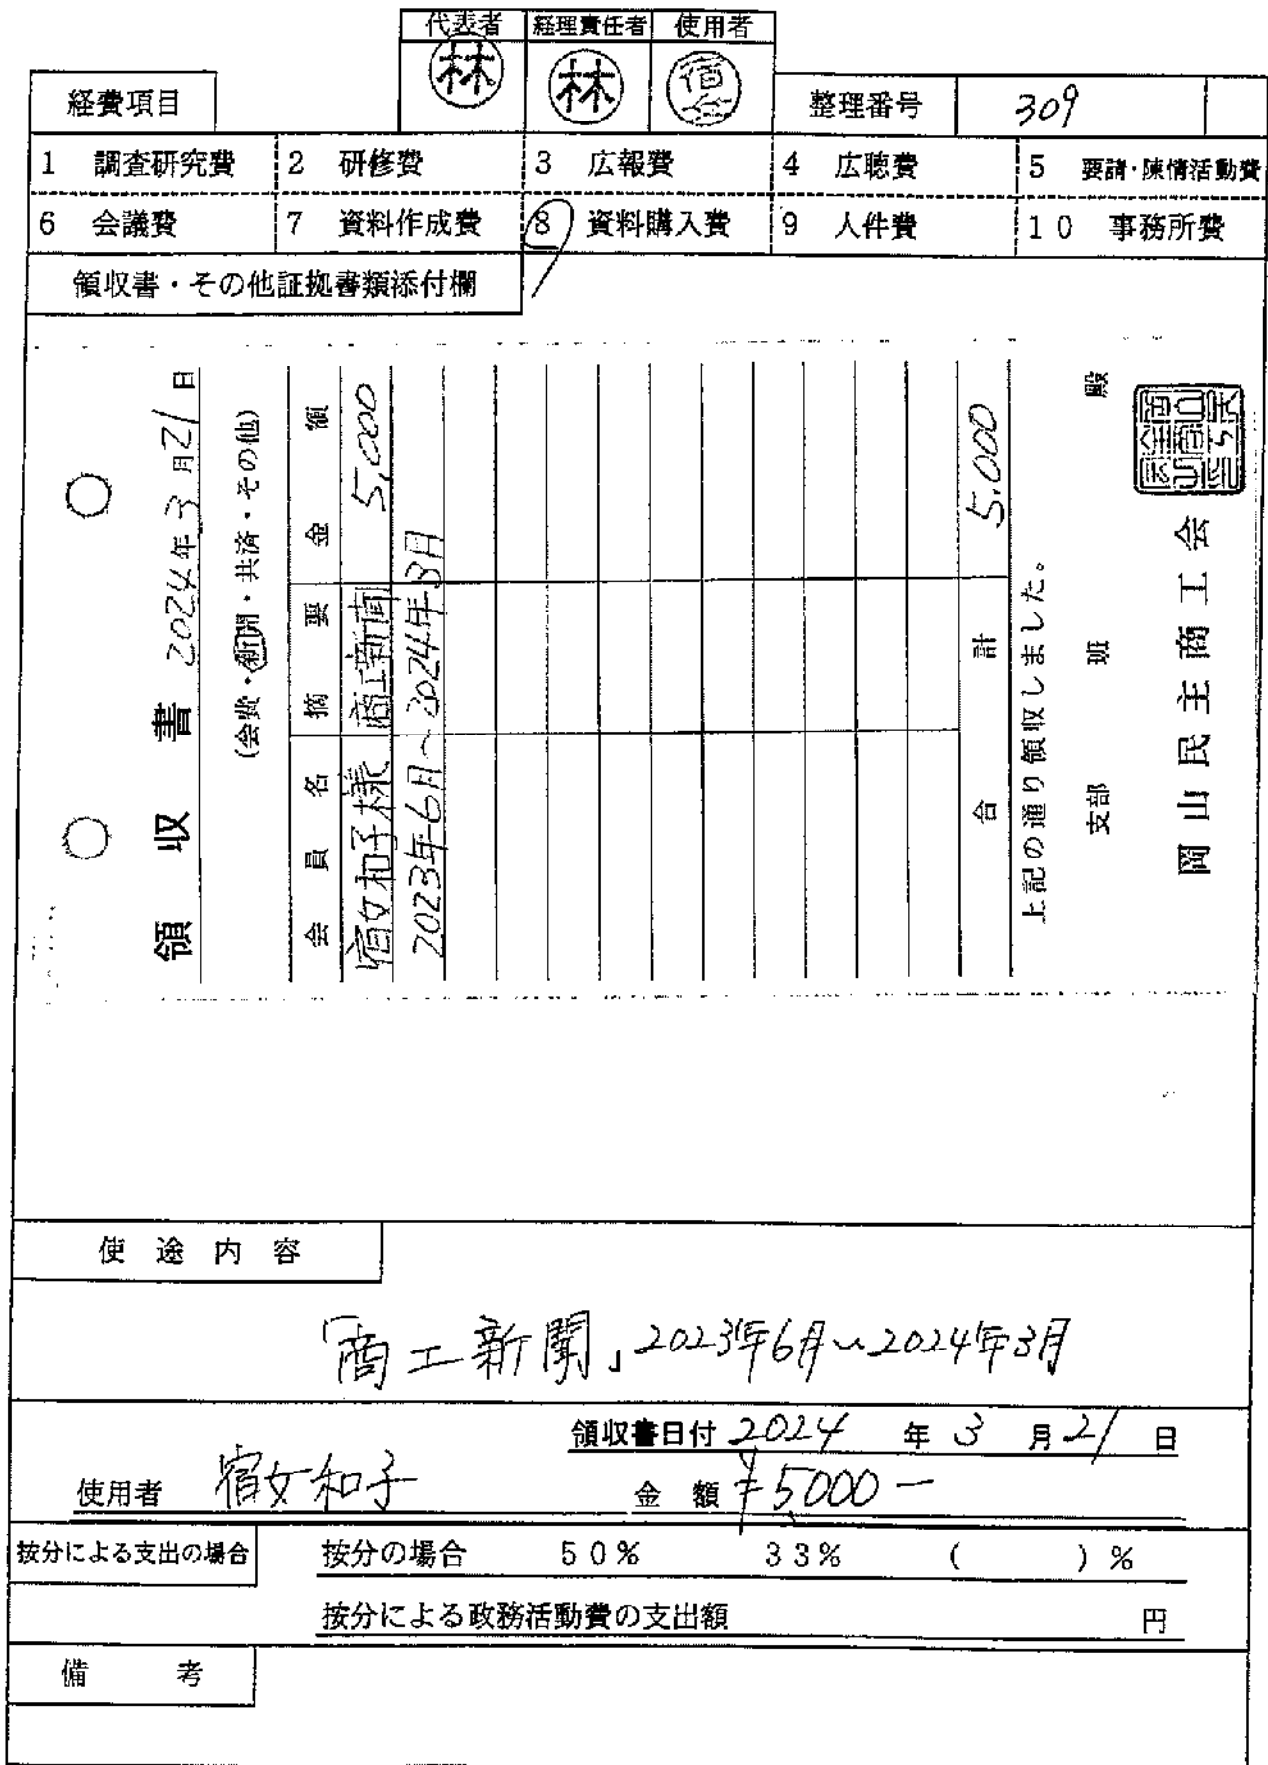 代表者 経理責任者 使用者
林 林 宿女
経費項目 整理番号 309
1 調査研究費 2 研修費 3 広報費 4 広聴費 5 要請・陳情活動費
6 会議費 7 資料作成費 8 資料購入費 9 人件費 10 事務所費
領収書・その他証拠書類添付欄
領収書 2024年3月21日
(会費・新聞・共済・その他)
会員名 摘要 金額
宿女和子様 商工新聞 5,000
2023年6月~2024年3月
合計 5,000
上記の通り領収しました。
支部 班 殿
岡山民主商工会
使途内容
「商工新聞」2023年6月~2024年3月
領収書日付 2024年3月21日
使用者 宿女和子 金額 ¥5000-
按分による支出の場合 按分の場合 50% 33% ( )%
按分による政務活動費の支出額 円
備考